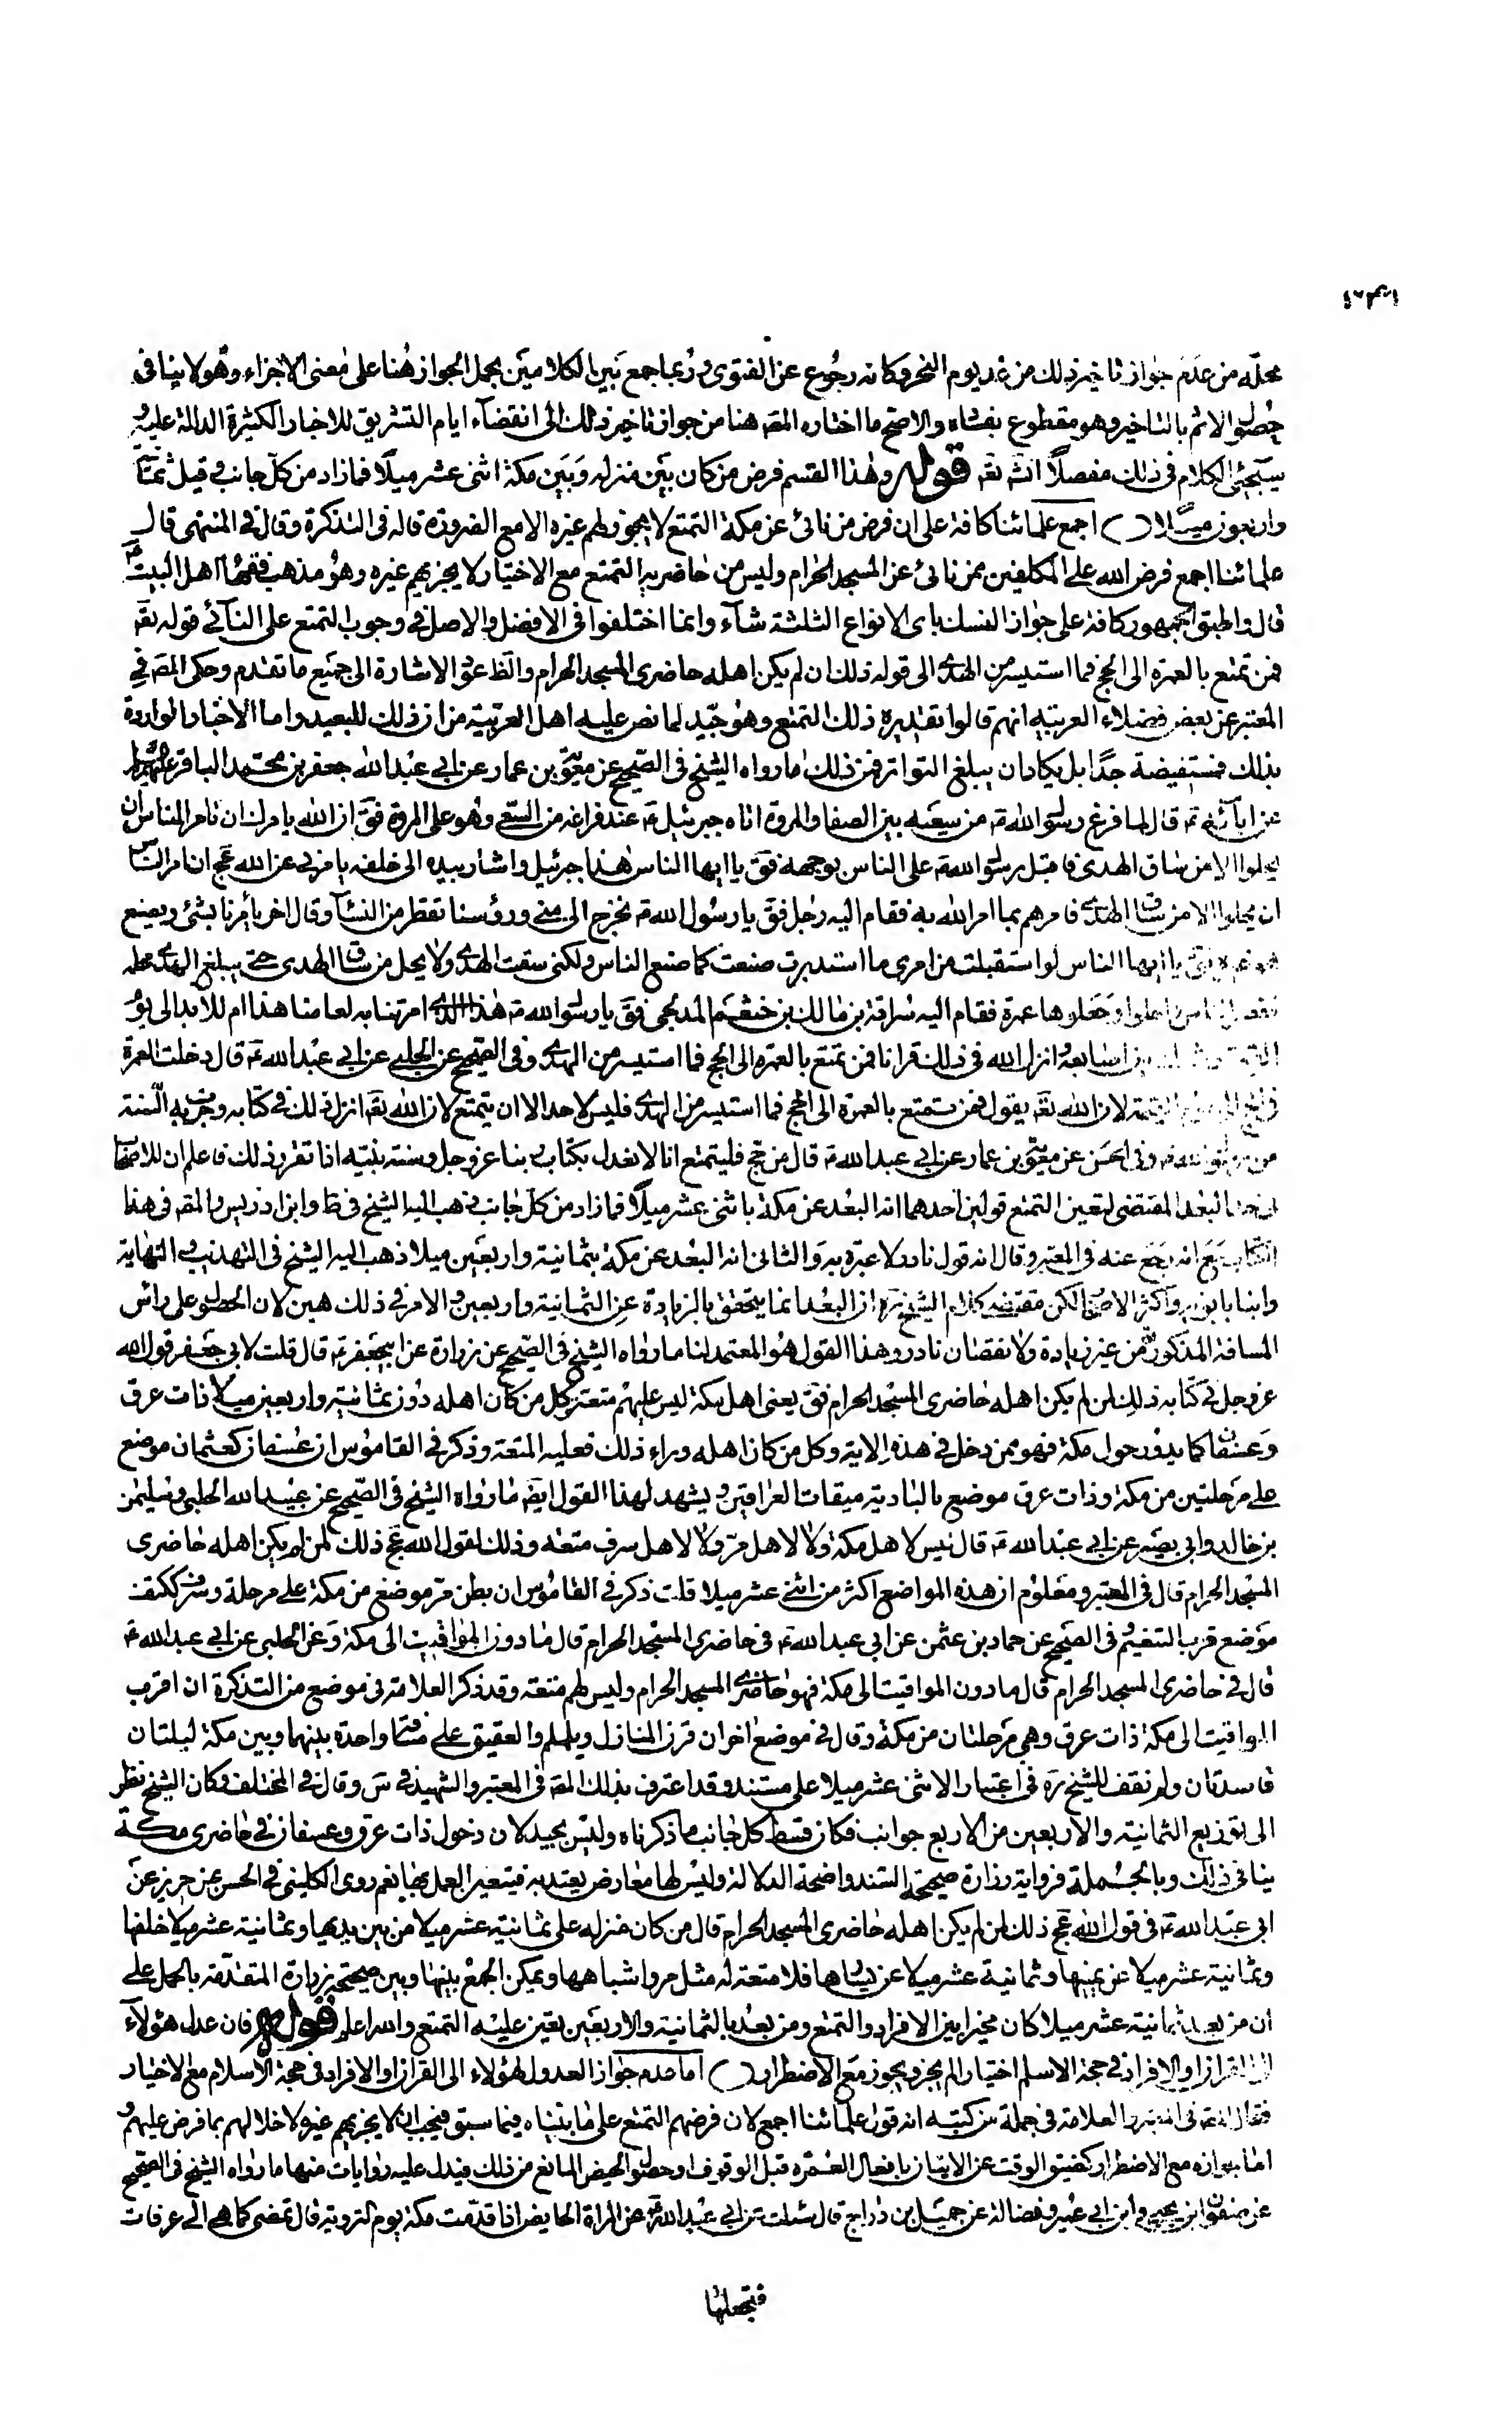 محلّه من عدم جواز تاخير ذلك من غد يوم النحر وكانه رجوع عن الفتوى وربما جمع بين الكلامين بحمل الجواز هنا على معنى الاجزاء وهو لا ينافى
حصول الاثم بالتاخير وهو مقطوع بفساده والاصح ما اختاره المصه هنا من جواز تاخير ذلك الى انقضاء ايام التشريق للاخبار الكثيرة الدالة عليه و
سيجئ الكلام فى ذلك مفصلاً انشه تعه قوله وهذا القسم فرض من كان بين منزله وبين مكة اثنى عشر ميلًا فمازاد من كل جانب وقيل ثمانية
واربعون ميلًا ( ) اجمع علمائنا كافة على ان فرض من نائ عن مكة التمتع لا يجوز لهم غيره الا مع الضرورة قاله فى التذكرة وقال فى المنتهى قال
علمائنا اجمع فرض الله على المكلفين ممن نائ عن المسجد الحرام وليس من حاضريه التمتع مع الاختيار لا يجزيهم غيره وهو مذهب فقهاء اهل البيت عم
قال واطبق الجمهور كافة على جواز النسك باى الانواع الثلثة شاء وانما اختلفوا فى الافضل والاصل فى وجوب التمتع على النائى قوله تعه
فمن تمتع بالعمرة الى الحج فما استيسر من الهدى الى قوله ذلك لمن لم يكن اهله حاضرى المسجد الحرام والظ عود الاشارة الى جميع ما تقدم وحكى المصه فى
المعتبر عن بعض فضلاء العربيه انهم قالوا تقديره ذلك التمتع وهو جيد لما نص عليه اهل العربية من ان ذلك للبعيد واما الاخبار الواردة
بذلك فمستفيضة جدًا بل يكاد ان يبلغ التواتر فمن ذلك ما رواه الشيخ فى الصحيح عن معوية بن عمار عن ابى عبد الله جعفر بن محمد الباقر عليهما السلام
عن ابآئه عم قال لما فرغ رسول الله صه من سعيه بين الصفا والمروة اتاه جبرئيل عه عند فراغه من السعى وهو على المروة فقه ان الله يامرك ان تامر الناس ان
يحلوا الا من ساق الهدى فاقبل رسول الله صه على الناس بوجهه فقه يا ايها الناس هذا جبرئيل واشار بيده الى خلفه يامرنى عن الله عج ان امر الناس
ان يحلوا الا من ساق الهدى فامرهم بما امر الله به فقام اليه رجل فقه يا رسول الله صه نخرج الى منى ورؤسنا تقطر من النسآء وقال اخر يأمرنا بشئ ويصنع
هو غيره فقه يا ايها الناس لو استقبلت من امرى ما استدبرت صنعت كما صنع الناس ولكنى سقت الهدى ولا يحل من ساق الهدى حتى يبلغ الهدى محله
فقصر الناس واحلوا وجعلوها عمرة فقام اليه سراقة بن مالك بن خثعم المدلجى فقه يا رسول الله صه هذا الذى امرتنا به لعامنا هذا ام للابد الى يوم
القيمة وشبك بين اصابعه وانزل الله فى ذلك قرانا فمن تمتع بالعمرة الى الحج فما استيسر من الهدى وفى الصحيح عن الحلبى عن ابى عبد الله عه قال دخلت العمرة
فى الحج الى يوم القيمة لان الله تعه يقول فمن تمتع بالعمرة الى الحج فما استيسر من الهدى فليس لاحد الا ان يتمتع لان الله تعه انزل ذلك فى كتابه وجرت به السنة
من رسول الله صه وفى الحسن عن معوية بن عمار عن ابى عبد الله عه قال من حج فليتمتع انا لا نعدل بكتاب ربنا عز وجل وسنة نبيه اذا تقرر ذلك فاعلم ان للاصحاب
فى حد البعد المقتضى لتعين التمتع قولين احدهما انه البعد عن مكة باثنى عشر ميلًا فمازاد من كل جانب ذهب اليه الشيخ فى ط وابن ادريس والمصه فى هذا
الكتاب مع انه رجع عنه فى المعتبر وقال انه قول نادر لا عبرة به والثانى انه البعد عن مكة بثمانية واربعين ميلا ذهب اليه الشيخ فى التهذيب والنهاية
وابنا بابويه واكثر الاصحاب لكن مقتضى كلام الشيخ ره ان البعد انما يتحقق بالزيادة عن الثمانية واربعين والامر فى ذلك هين لان الحصول على راس
المسافة المذكورة من غير زيادة ولا نقصان نادر وهذا القول هو المعتمد لنا ما رواه الشيخ فى الصحيح عن زرارة عن ابى جعفر عه قال قلت لابى جعفر قول الله
عز وجل فى كتابه ذلك لمن لم يكن اهله حاضرى المسجد الحرام فقه يعنى اهل مكة ليس عليهم متعة وكل من كان اهله دون ثمانية واربعين ميلا ذات عرق
وعسفان كما يدور حول مكة فهو ممن دخل فى هذه الاية وكل من كان اهله وراء ذلك فعليه المتعة وذكر فى القاموس ان عسفان كعثمان موضع
على مرحلتين من مكة وذات عرق موضع بالبادية ميقات العراقيين ويشهد لهذا القول ايضه ما رواه الشيخ فى الصحيح عن عبيد الله الحلبى وسليمن
بن خالد وابى بصير عن ابى عبد الله عه قال ليس لاهل مكة ولا لاهل مر ولا لاهل سرف متعة وذلك لقول الله عج ذلك لمن لم يكن اهله حاضرى
المسجد الحرام قال فى المعتبر ومعلوم ان هذه المواضع اكثر من اثنى عشر ميلا قلت ذكر فى القاموس ان بطن مر موضع من مكة على مرحلة وسرف ككتف
موضع قرب التنعيم وفى الصحيح عن حماد بن عثمن عن ابى عبد الله عه فى حاضرى المسجد الحرام قال ما دون المواقيت الى مكة وعن الحلبى عن ابى عبد الله عه
قال فى حاضرى المسجد الحرام قال ما دون المواقيت الى مكة فهو حاضرى المسجد الحرام وليس لهم متعة وقد ذكر العلامة فى موضع من التذكرة ان اقرب
المواقيت الى مكة ذات عرق وهى مرحلتان من مكة وقال فى موضع اخر ان قرن المنازل ويلملم والعقيق على مسافة واحدة بينهما وبين مكة ليلتان
قاصدتان ولم نقف للشيخ ره فى اعتبار الاثنى عشر ميلا على مستند وقد اعترف بذلك المصه فى المعتبر والشهيد فى س وقال فى المختلف وكان الشيخ نظر
الى توزيع الثمانية والاربعين من الاربع جوانب فكان قسط كل جانب ما ذكرناه وليس بجيد لان دخول ذات عرق وعسفان فى حاضرى مكة
ينافى ذلك وبالجملة فرواية زرارة صحيحة السند واضحة الدلالة وليس لها معارض يعتد به فيتعين العمل بها نعم روى الكلينى فى الحسن عن حريز عن
ابى عبد الله عه فى قول الله عج ذلك لمن لم يكن اهله حاضرى المسجد الحرام قال من كان منزله على ثمانية عشر ميلا من بين يديها وثمانية عشر ميلا خلفها
وثمانية عشر ميلا عن يمينها وثمانية عشر ميلا عن يسارها فلا متعة له مثل مر واشباهها ويمكن الجمع بينها وبين صحيحة زرارة المتقدمة بالحمل على
ان من بعد ثمانية عشر ميلا كان مخيرا بين الافراد والتمتع ومن بعد بالثمانية والاربعين يتعين عليه التمتع والله اعلم قوله فان عدل هؤلآء
الى القران او الافراد فى حجة الاسلم اختيارا لم يجز ويجوز مع الاضطرار ( ) اما عدم جواز العدول لهؤلاء الى القران او الافراد فى حجة الاسلام مع الاختيار
فقال المصه فى المعتبر والعلامة فى جملة من كتبه انه قول علمائنا اجمع لان فرضهم التمتع على ما بيناه فيما سبق فيجب ان لا يجزيهم غيره لاخلالهم بما فرض عليهم و
اما جوازه مع الاضطرار كضيق الوقت عن الاتيان بافعال العمرة قبل الوقوف او حصول الحيض المانع من ذلك فيدل عليه روايات منها ما رواه الشيخ فى الصحيح
عن صفوان بن يحيى وابن ابى عمير وفضالة عن جميل بن دراج قال سئلت عن ابى عبد الله عه عن المراة الحايض اذا قدمت مكة يوم التروية قال تمضى كما هى الى عرفات
فتجعلها